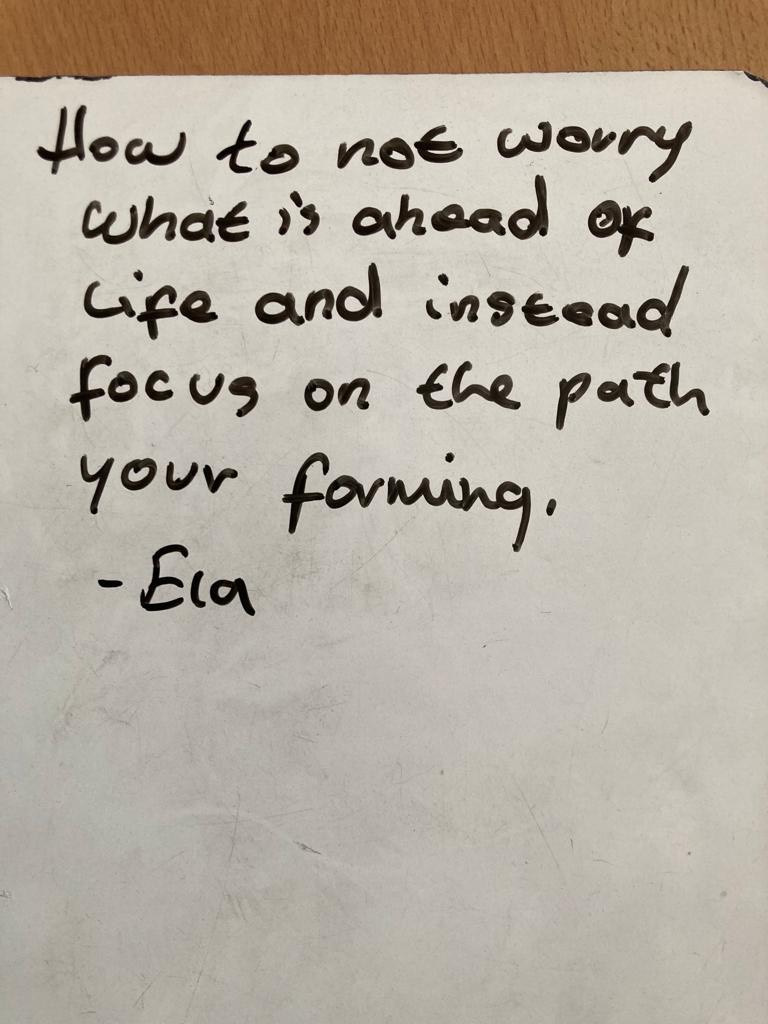 How to not worry
what is ahead of
life and instead
focus on the path
your forming.
- Ela